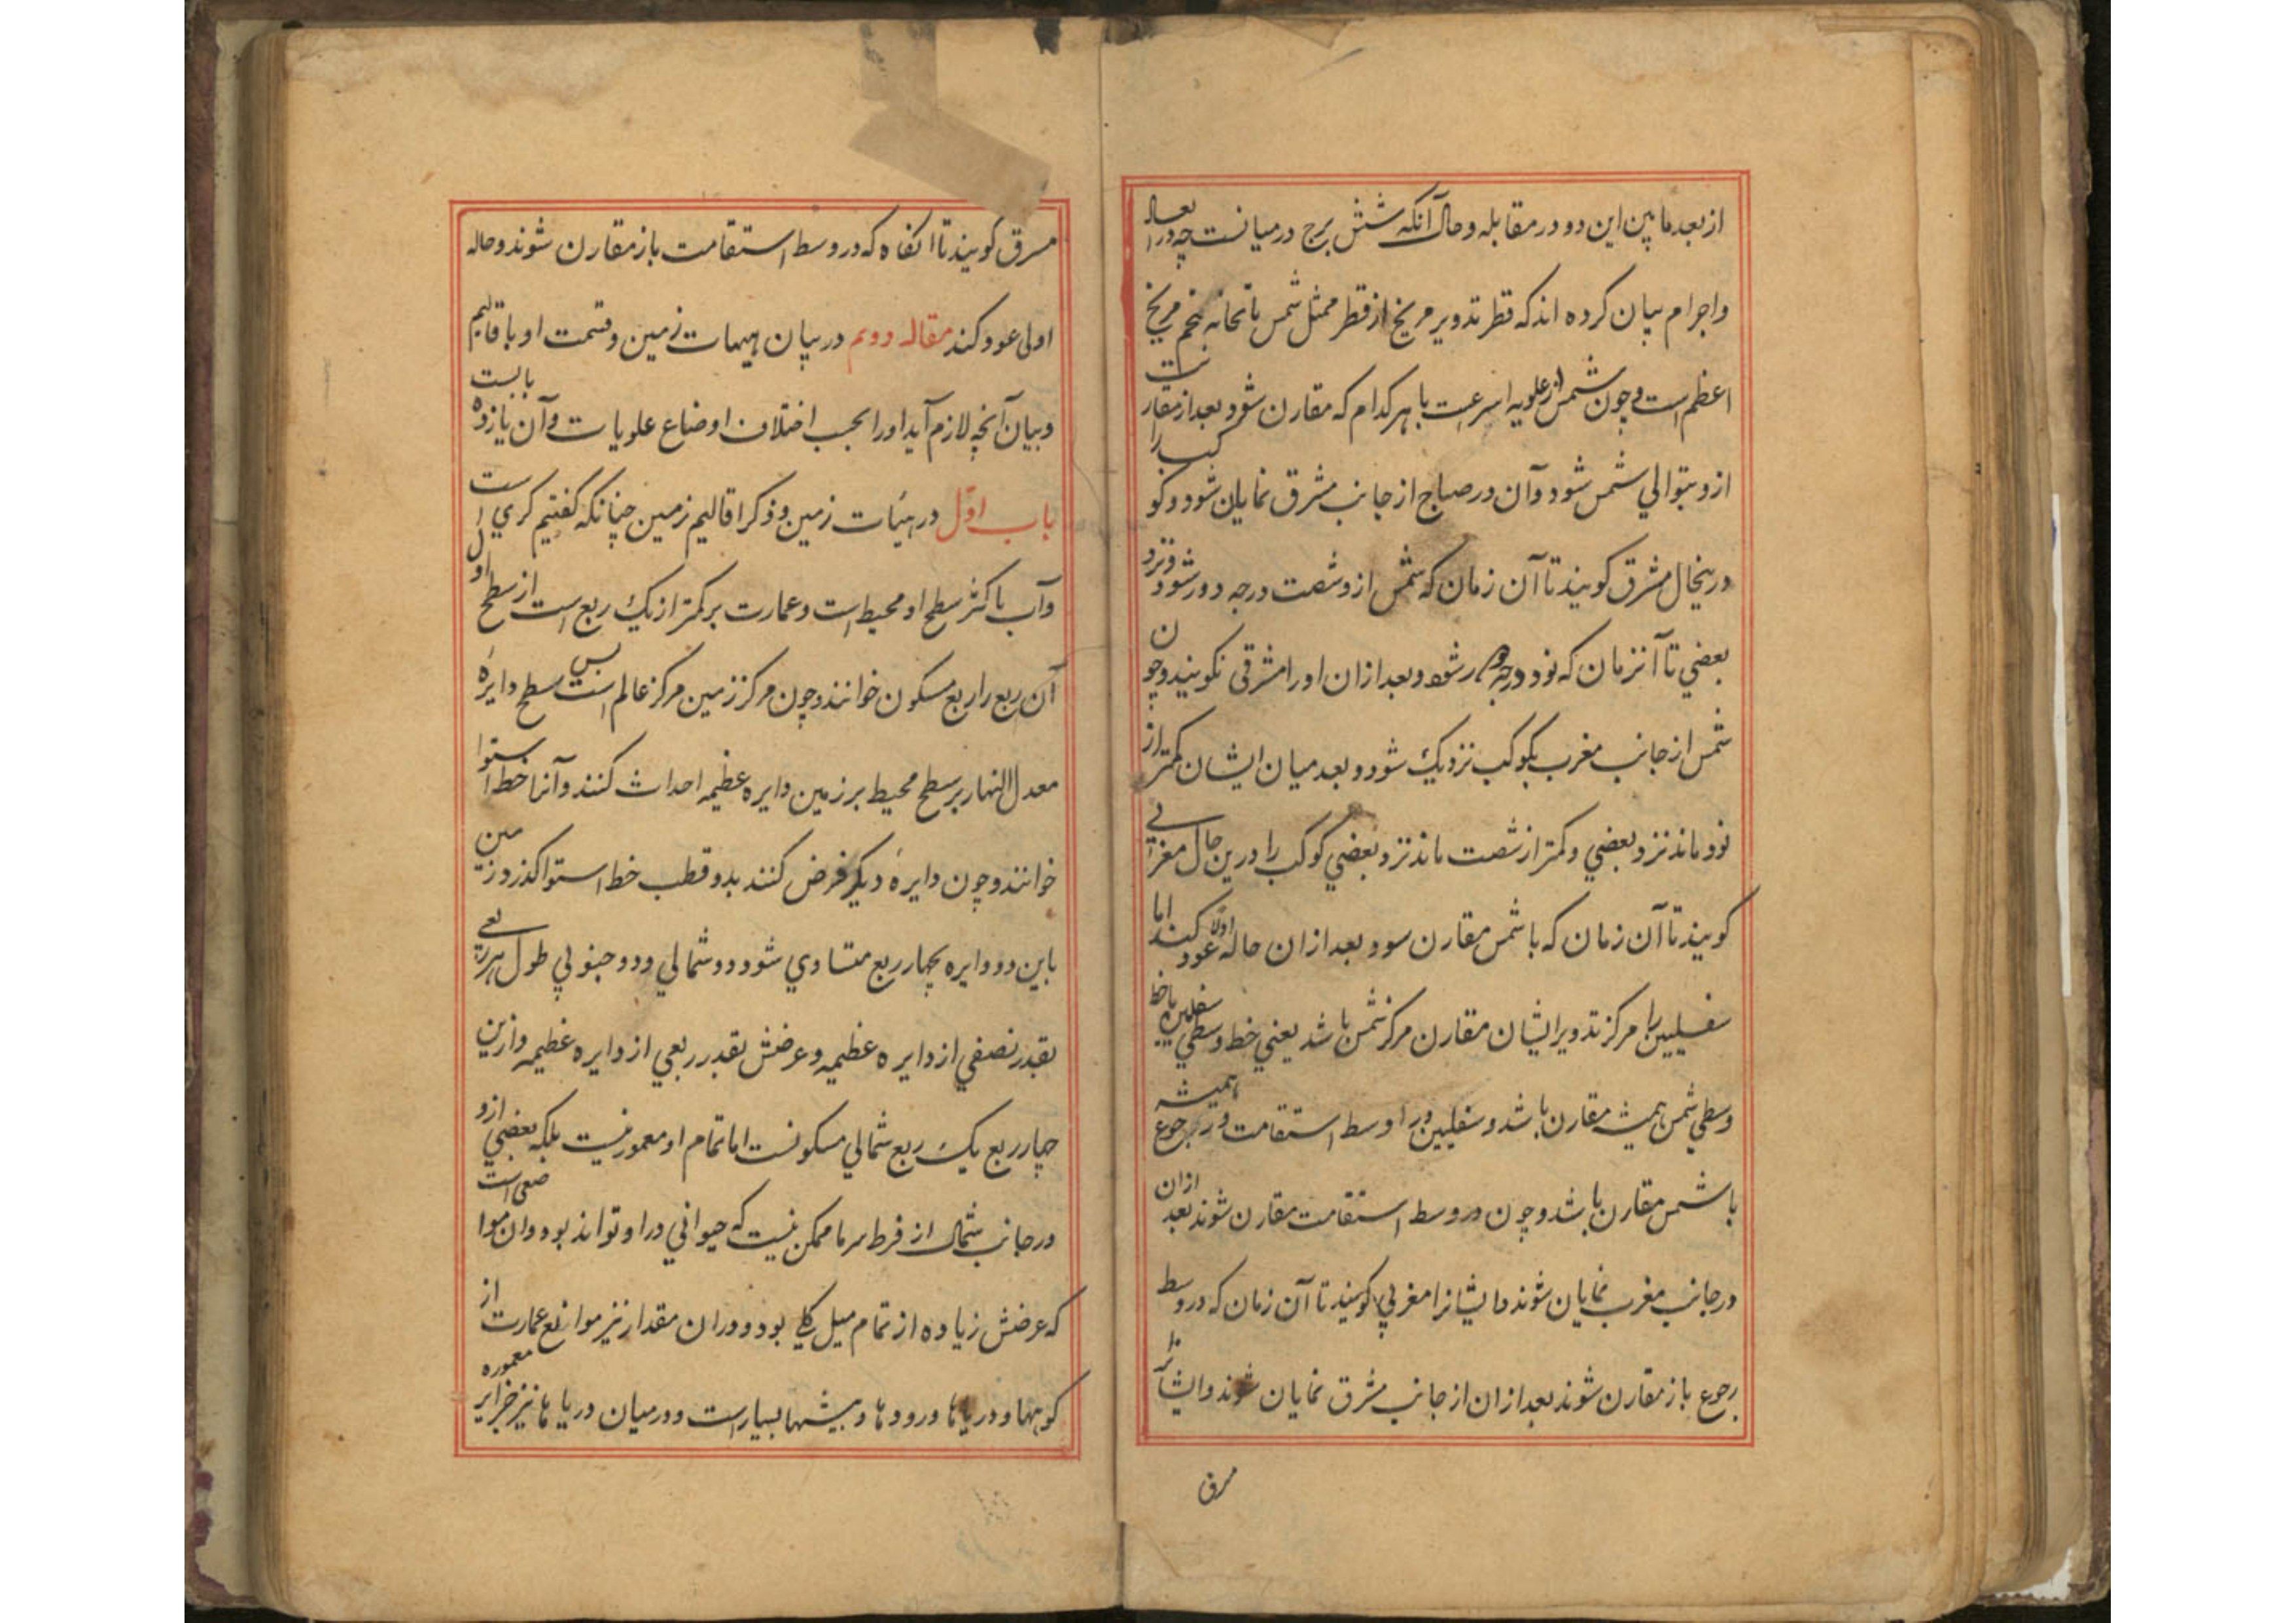 از بعد مابین این دو در مقابله و حال آنکه شش برج در میانست چه در ابعاد
و اجرام بیان کرده اند که قطر تدویر مریخ از قطر ممثل شمس با ثخانه مریخ
اعظم است و چون شمس از علویه اسرعست با هر کدام که مقارن شود بعد از مقارنت
ازو بتوالي شمس شود و آن در صباح از جانب مشرق نمایان شود و کوکب را
درینحال مشرق کویند تا آن زمان که شمس ازو شصت درجه دور شود و نزد
بعضي تا آنزمان که نود درجه دور شود و بعد ازان او را مشرقی نکویند و چون
شمس از جانب مغرب بکوکب نزدیک شود و بعد میان ایشان کمتر از
نود ماند نزد بعضي و کمتر از شصت ماند نزد بعضي کوکب را درین حال مغرابي
کویند تا آن زمان که با شمس مقارن سود و بعد ازان حاله اولا عود کند اما
سفلیین را مرکز تدویر ایشان مقارن مرکز شمس باشد یعني خط وسطي سفلیین با خط
وسطي شمس همیشه مقارن باشد و سفلیین در اوسط استقامت و رجوع همیشه
با شمس مقارن باشد و چون در وسط استقامت مقارن شوند بعد ازان
در جانب مغرب نمایان شوند و ایشانرا مغربي کویند تا آن زمان که در وسط
رجوع باز مقارن شوند بعد ازان از جانب مشرق نمایان شوند و ایشانرا
مرق
مسرق کویند تا انکاه که در وسط استقامت باز مقارن شوند و حاله
اولی عود کند مقاله دویم در بیان هیهات زمین و قسمت او باقالیم
و بیان آنچه لازم آید او را بحسب اختلاف اوضاع علویات و آن یازده بابست
باب اوّل در هیئات زمین و ذکر اقالیم زمین چنانکه کفتیم کري است
و آب باکثر سطح او محیط است و عمارت بر کمتر از یک ربع است از سطح او
آن ربع را ربع مسکون خوانند و چون مرکز زمین مرکز عالم است پس سطح دایرهٔ
معدل النهار بر سطح محیط بر زمین دایره عظیمه احداث کنند و آنرا خط استوا
خوانند و چون دایرهٔ دیکر فرض کنند بدو قطب خط استوا کذرد زمین
باین دو دایره بچهار ربع متساوي شود دو شمالي و دو جنوبي طول هر ربعي
بقدر نصفي از دایره عظیمه و عرضش بقدر ربعي از دایره عظیمه و ازین
چهار ربع یک ربع شمالي مسکونست اما تمام او معمور نیست بلکه بعضي ازو
در جانب شمال از فرط سرما ممکن نیست که حیواني در او تواند بود و ان مواضعی است
که عرضش زیاده از تمام میل کلي بود و در ان مقدار نیز موانع عمارت از
کوهها و دریاها و رودها و بیشها بسیار است و در میان دریاها نیز جزایر معموره